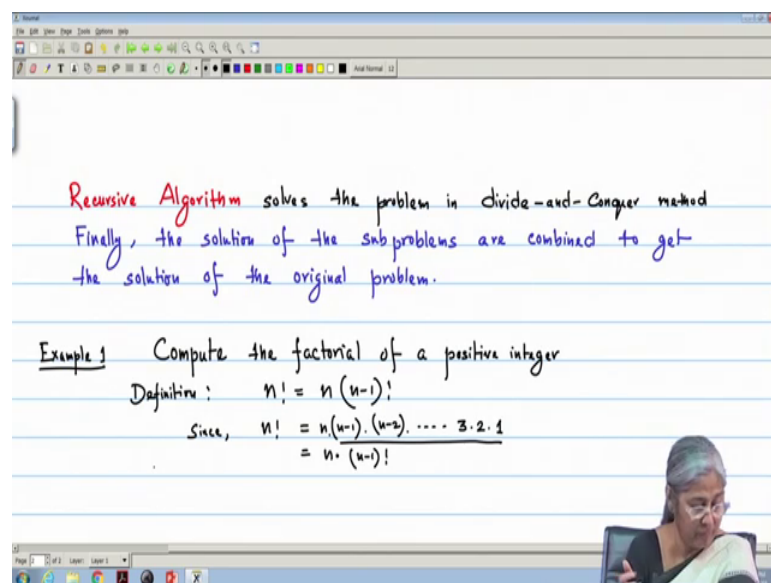 Journal
File Edit View Page Tools Options Help
Arial Normal 12
Recursive Algorithm solves the problem in divide-and-Conquer method
Finally, the solution of the subproblems are combined to get
the solution of the original problem.
Example 1 Compute the factorial of a positive integer
Definition: n! = n (n-1)!
Since, n! = n.(n-1).(n-2). .... 3.2.1
= n. (n-1)!
Page 2 of 2 Layer: Layer 1